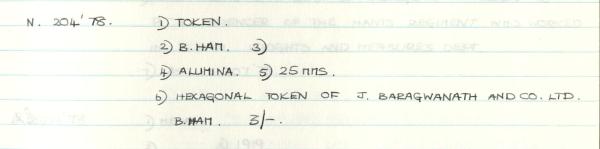 N. 204' 78. 1) TOKEN.
2) B.HAM. 3)
4) ALUMINA. 5) 25 MMS.
6) HEXAGONAL TOKEN OF J. BARAGWANATH AND CO. LTD.
B.HAM. 3/-.